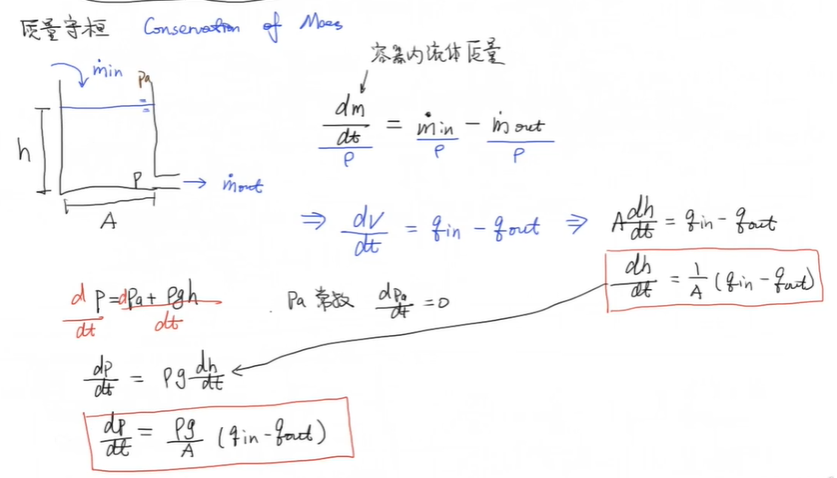 质量守恒 Conservation of Mass
容器内流体质量
ṁin
Pa
h
P
ṁout
A
dm/dt / ρ = ṁin / ρ - ṁout / ρ
⇒ dV/dt = qin - qout ⇒ A dh/dt = qin - qout
dh/dt = 1/A (qin - qout)
d/dt P = dPa + ρgh / dt
Pa 常数 dPa/dt = 0
dP/dt = ρg dh/dt
dP/dt = ρg/A (qin - qout)